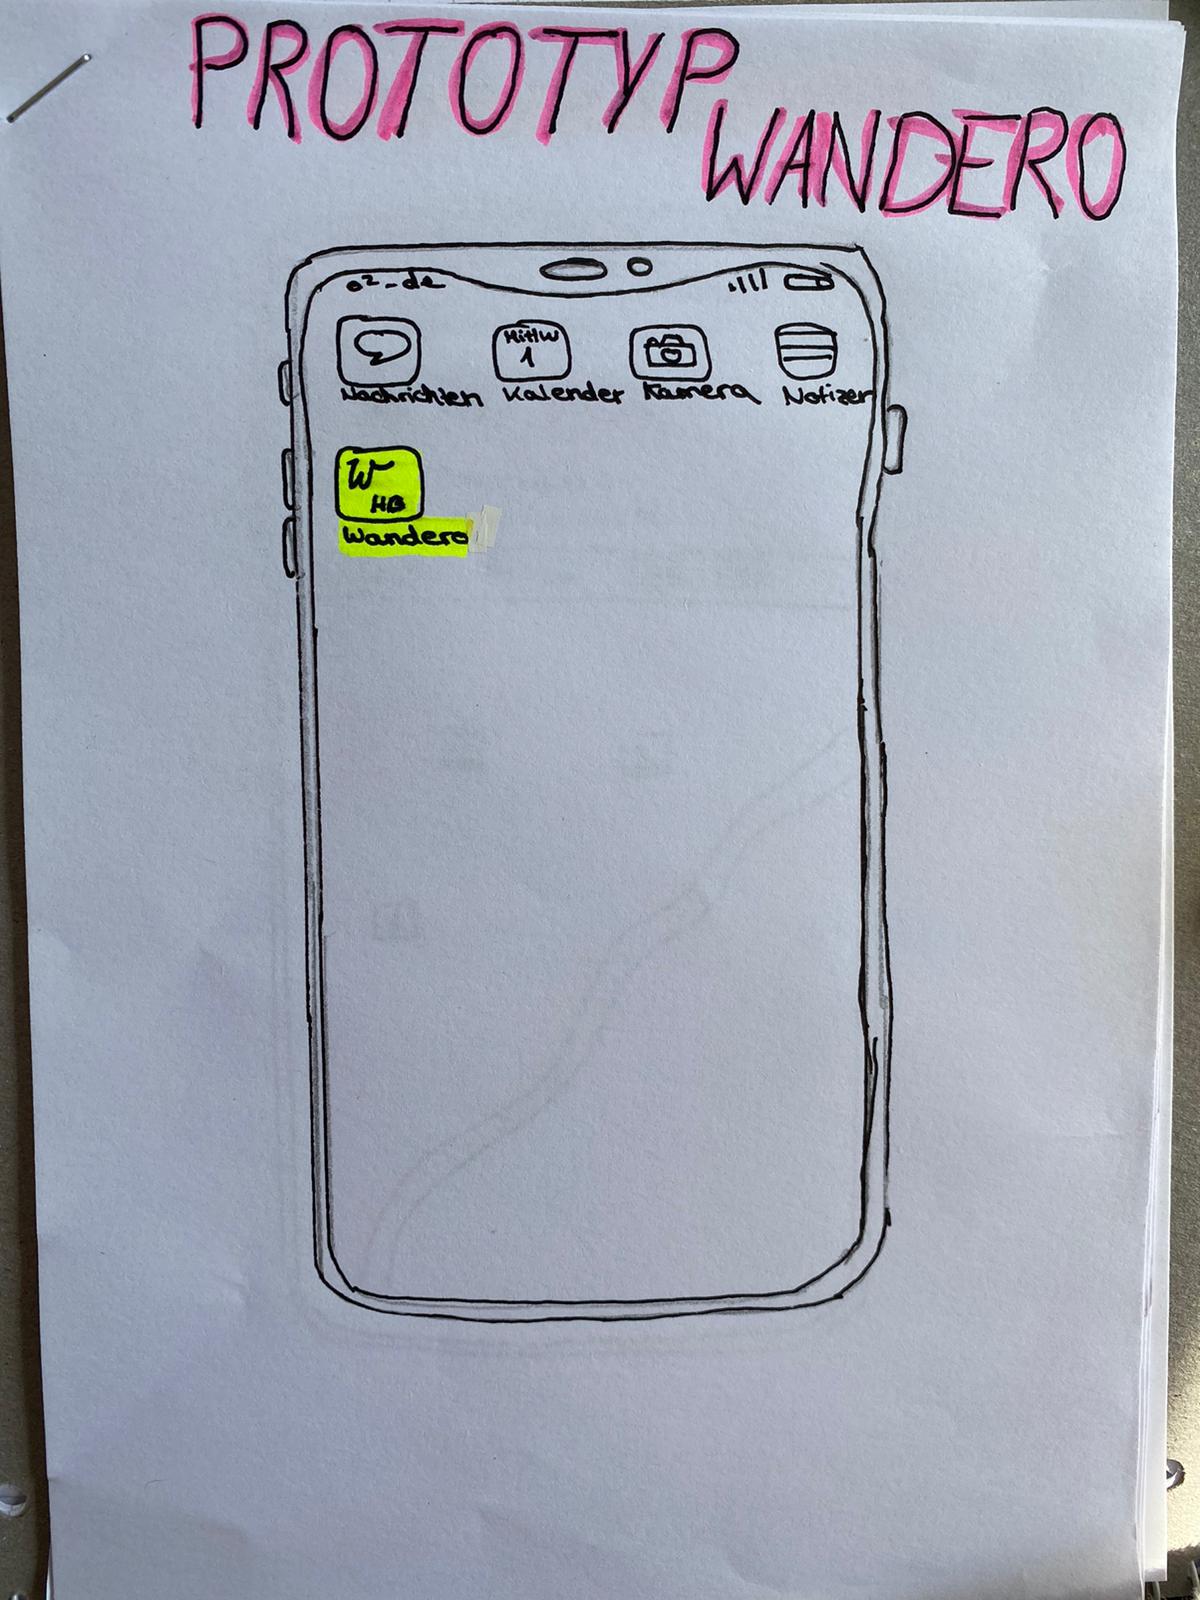 PROTOTYP
WANDERO
o2-de
Mittw
1
Nachrichten Kalender Kamera Notizen
W
HB
Wandero